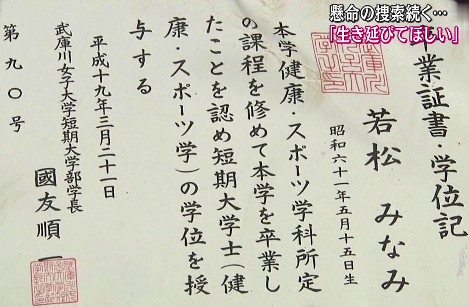 懸命の捜索続く…
「生き延びてほしい」
卒業証書・学位記
若松 みなみ
昭和六十一年五月十五日生
本学健康・スポーツ学科所定
の課程を修めて本学を卒業し
たことを認め短期大学士（健
康・スポーツ学）の学位を授
与する
平成十九年三月二十一日
武庫川女子大学短期大学部学長
國友順一
第九〇号